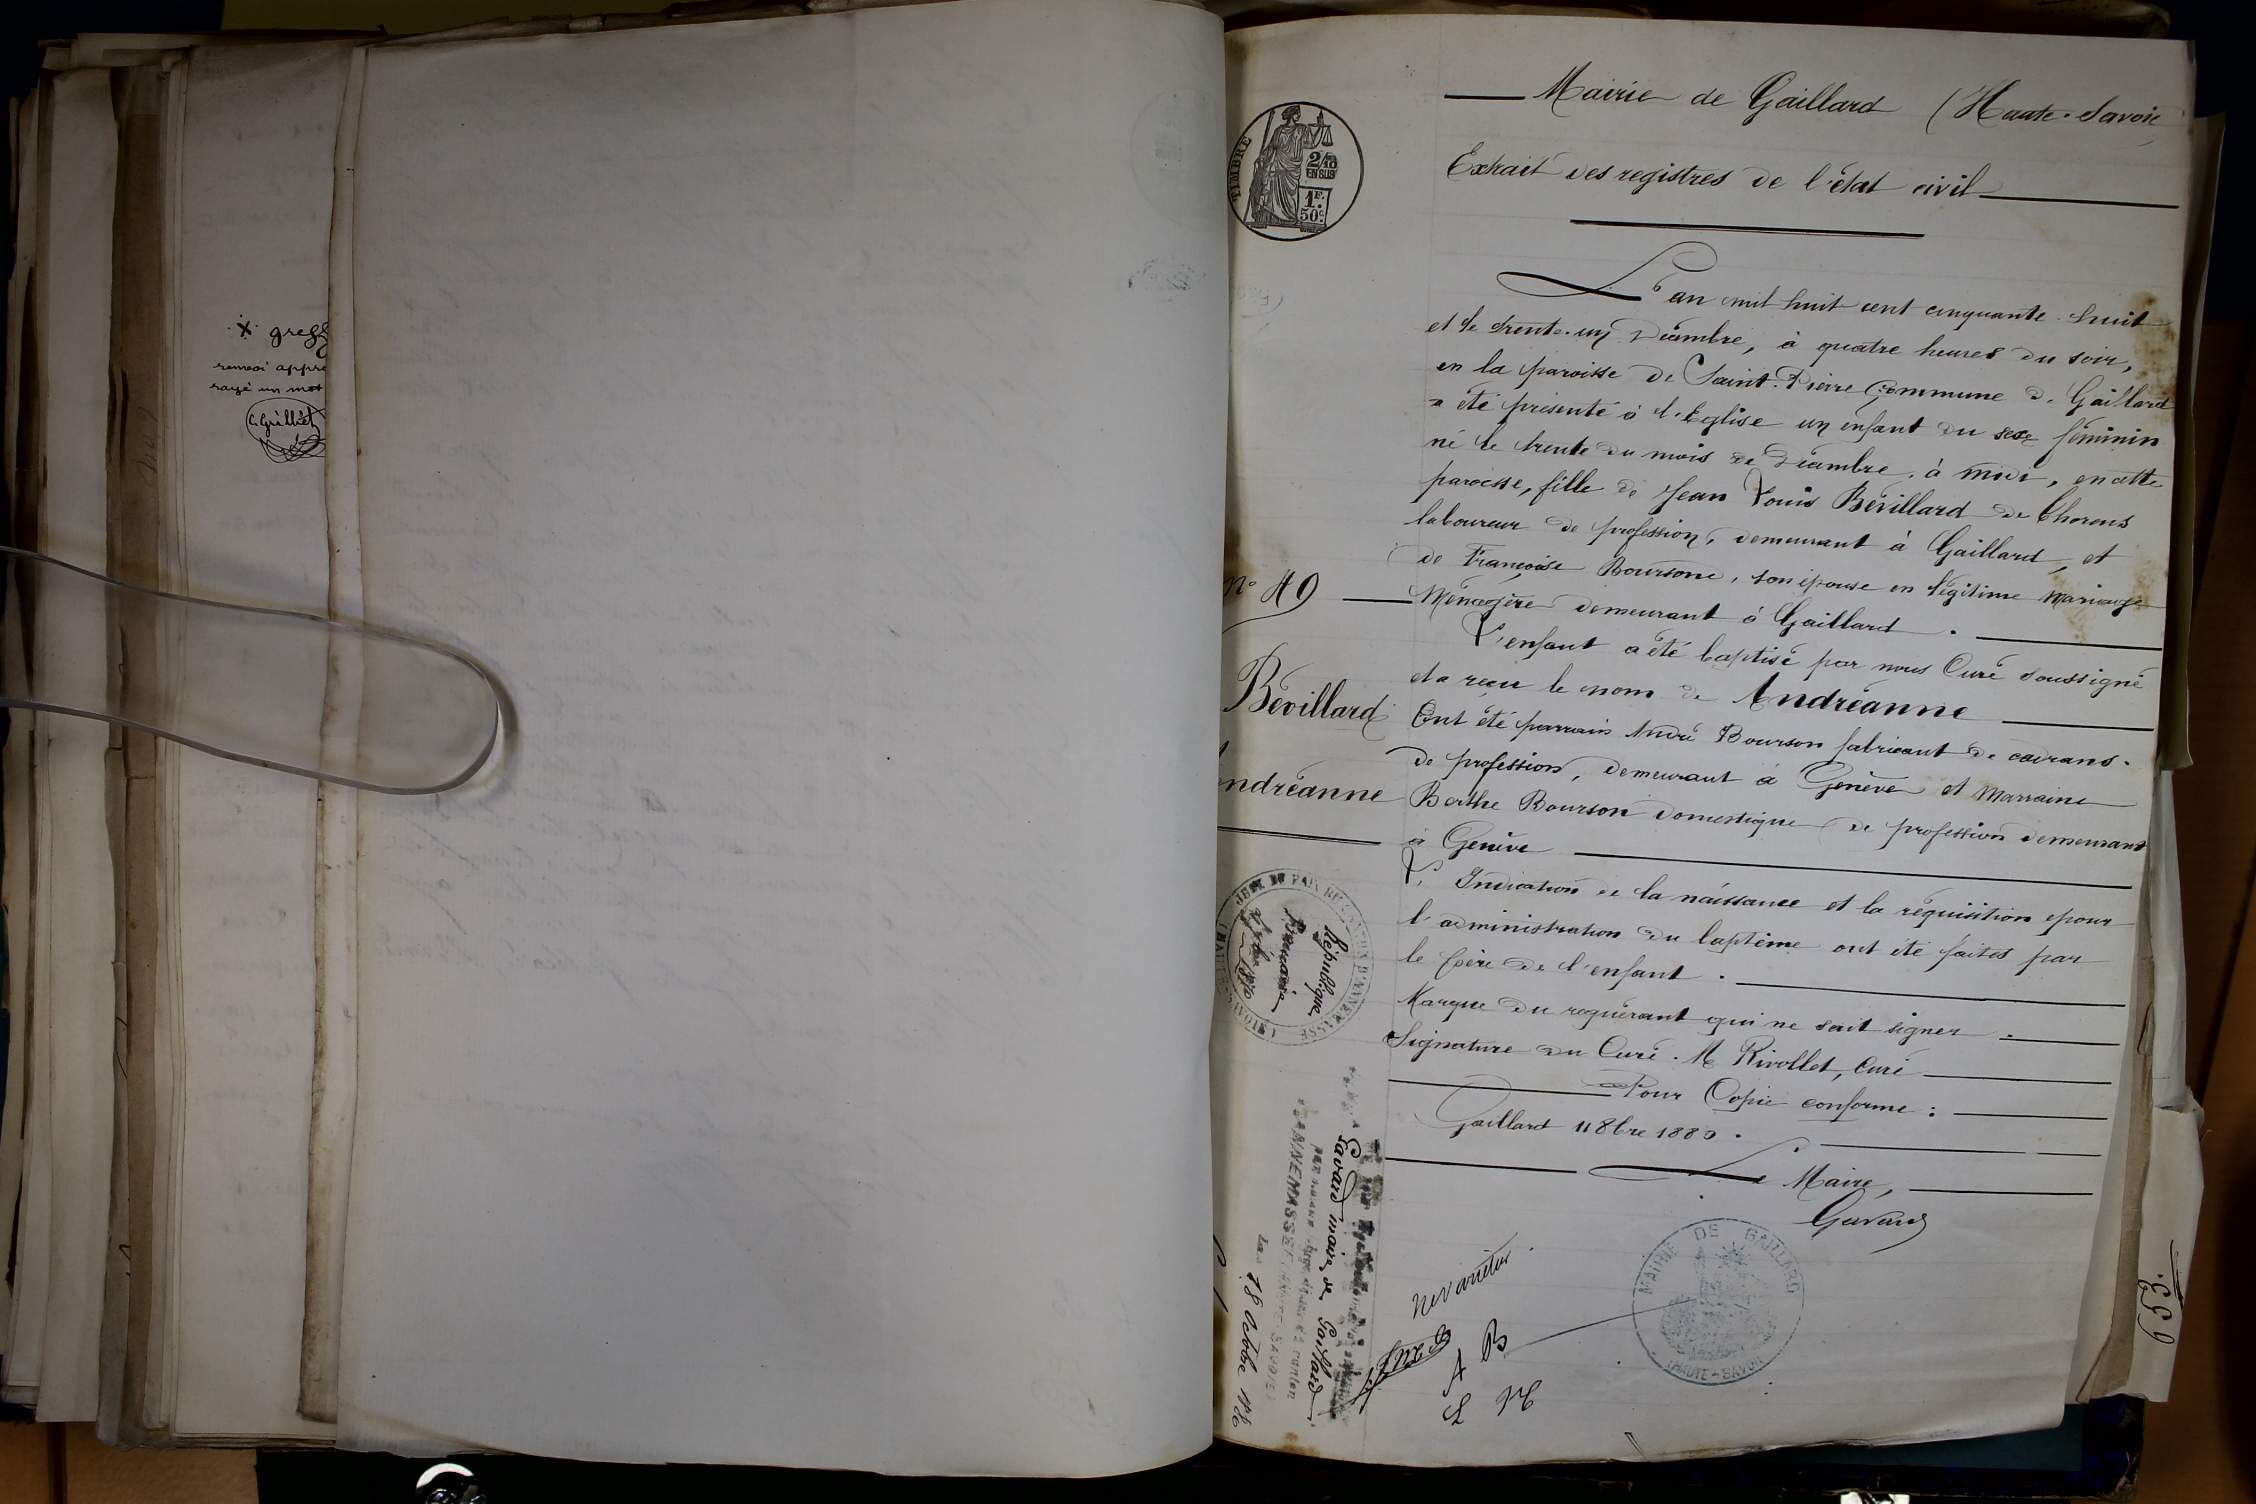 X. greff
renvoi appro
rayé un mot
C. Grillet
TIMBRE
2/10
EN SUS
1F.
50c.
Mairie de Gaillard (Haute-Savoie
Extrait des registres de l'état civil
L'an mil huit cent cinquante-huit
et le trente-un Décembre, à quatre heures du soir,
en la paroisse de Saint-Pierre Commune de Gaillard
a été présenté à l'Eglise un enfant du sexe féminin
né le trente du mois de Décembre à midi, en cette
paroisse, fille de Jean Louis Bévillard de Chorens
laboureur de profession, demeurant à Gaillard, et
de Françoise Boursone, son épouse en légitime mariage
Ménagère demeurant à Gaillard.
L'enfant a été baptisé par nous Curé soussigné
et a reçu le nom de Andréanne
Ont été parrain André Bourson fabricant de cadrans.
de profession, demeurant à Genève et Marraine
Berthe Bourson domestique de profession demeurant
à Genève
L'Indication de la naissance et la réquisition pour
l'administration du baptême ont été faites par
le père de l'enfant.
Marque du requérant qui ne sait signer.
Signature du Curé. M Rivollet, Curé
Pour Copie conforme :
Gaillard 11 8bre 1880.
Le Maire,
Gavard
No 49
Bévillard
Andréanne
JUGE DE PAIX DU CANTON D'ANNEMASSE
(HAUTE-SAVOIE)
République
Française
Gavard maire de Gaillard
D'ANNEMASSE (HAUTE-SAVOIE)
Le 18 Octobre
MAIRIE DE GAILLARD
(HAUTE-SAVOIE)
Ne varietur
A B
L M
653.